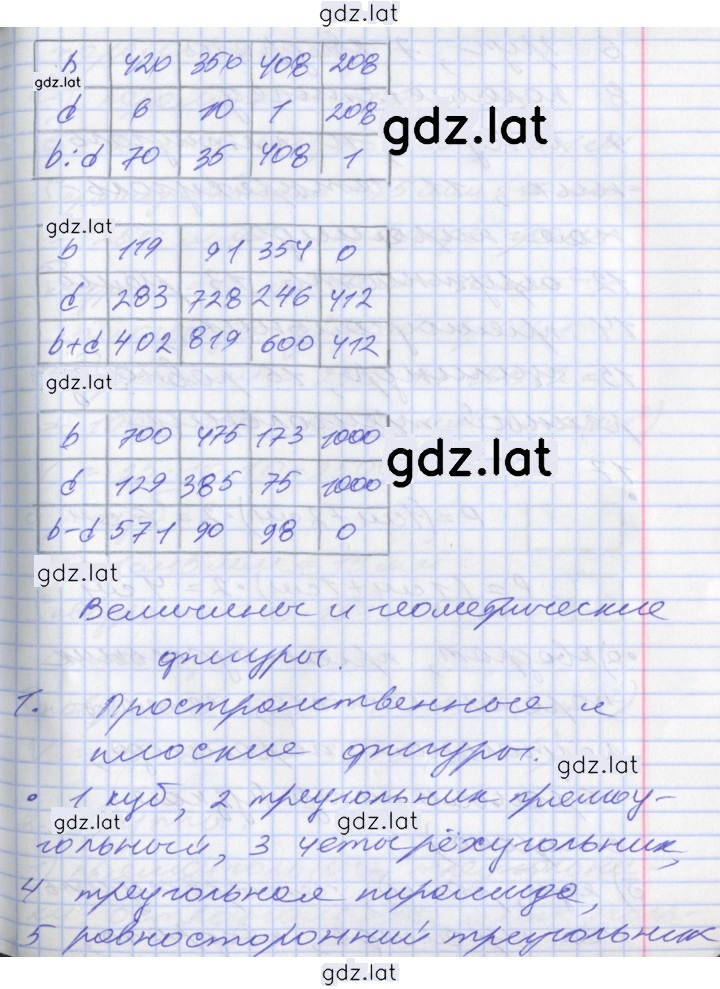 gdz.lat
b 420 350 408 208
gdz.lat
d 6 10 1 208
gdz.lat
b:d 70 35 408 1
gdz.lat
b 119 91 354 0
d 283 728 246 412
b+d 402 819 600 412
gdz.lat
b 700 475 173 1000
gdz.lat
d 129 385 75 1000
b-d 571 90 98 0
gdz.lat
Величины и геометрические
фигуры.
1. Пространственные и
плоские фигуры.
gdz.lat
• 1 куб, 2 треугольник прямоу-
gdz.lat gdz.lat
гольный, 3 четырёхугольник,
4 треугольная пирамида,
5 равносторонний треугольник
gdz.lat